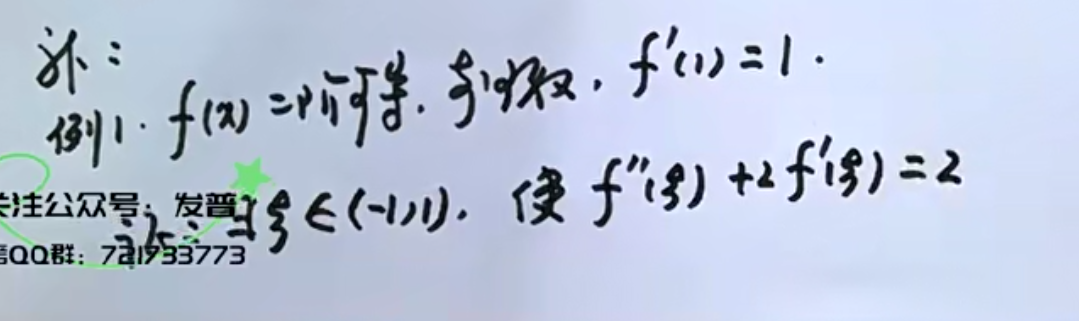 补：
例1. f(x)二阶可导. 奇函数. f'(1)=1.
证：∃ξ∈(-1,1). 使 f''(ξ)+2f'(ξ)=2
关注公众号：发普
QQ群：721733773